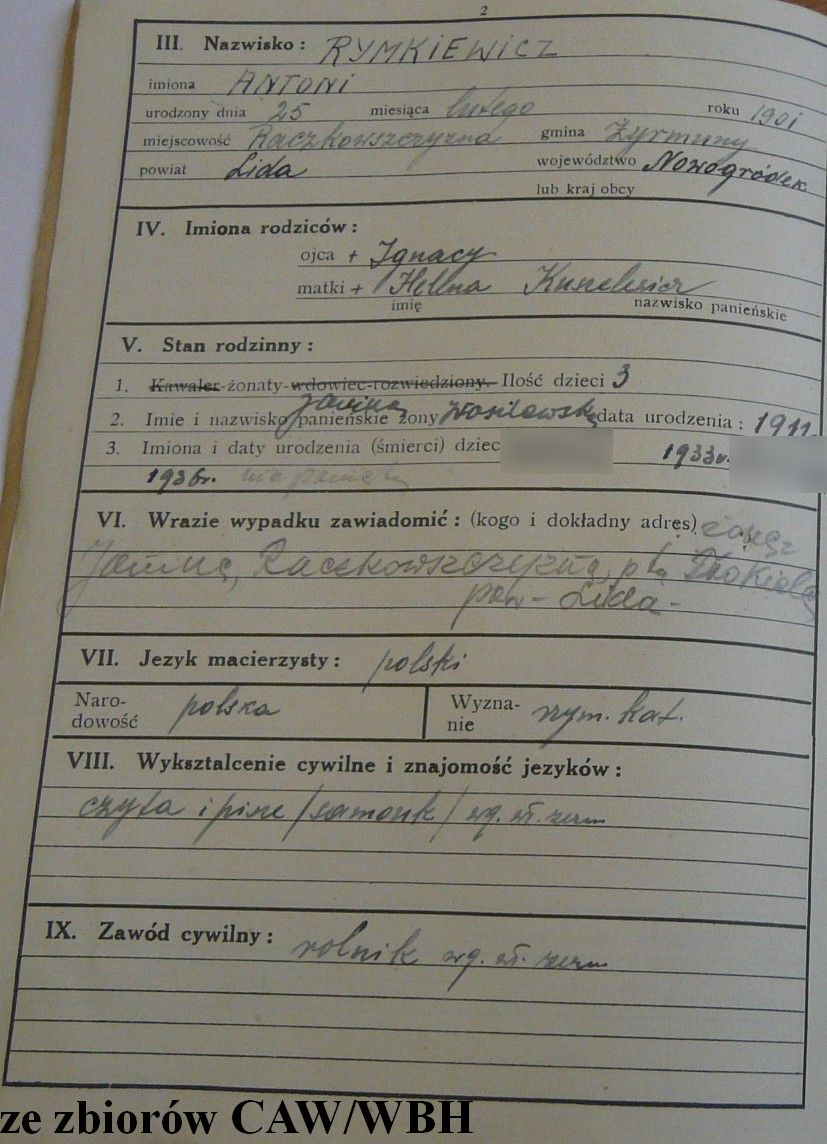 2
III. Nazwisko: RYMKIEWICZ
imiona ANTONI
urodzony dnia 25 miesiąca lutego roku 1901
miejscowość Raczkowszczyzna gmina Żyrmuny
powiat Lida województwo Nowogródek
lub kraj obcy
IV. Imiona rodziców:
ojca + Ignacy
matki + Helena
imię nazwisko panieńskie
V. Stan rodzinny:
1. Kawaler-żonaty-wdowiec-rozwiedziony. Ilość dzieci 3
Janina
2. Imie i nazwisko panieńskie żony Wasilewska data urodzenia: 1911
3. Imiona i daty urodzenia (śmierci) dziec 1933r.
1936r. nie pamięta
VI. Wrazie wypadku zawiadomić: (kogo i dokładny adres) żonę:
Janinę, Raczkowszczyzna, pta
pow - Lida -
VII. Jezyk macierzysty: polski
Naro- Wyzna-
dowość polska nie rzym. kat.
VIII. Wyksztalcenie cywilne i znajomość jezyków:
czyta i pisze /samouk/ wg. wł. zezn
IX. Zawód cywilny: rolnik wg. wł. zezn
ze zbiorów CAW/WBH